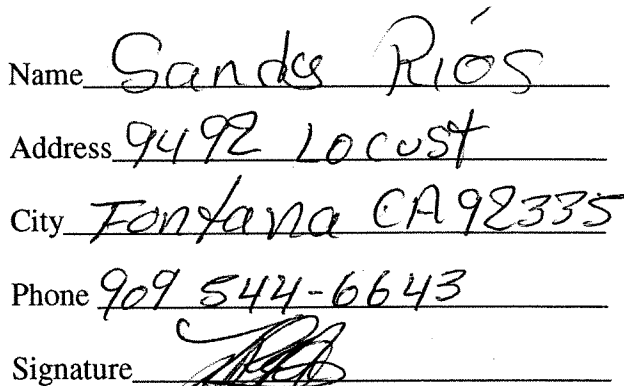 Name Sandy Ríos
Address 9492 Locust
City Fontana CA 92335
Phone 909 544-6643
Signature